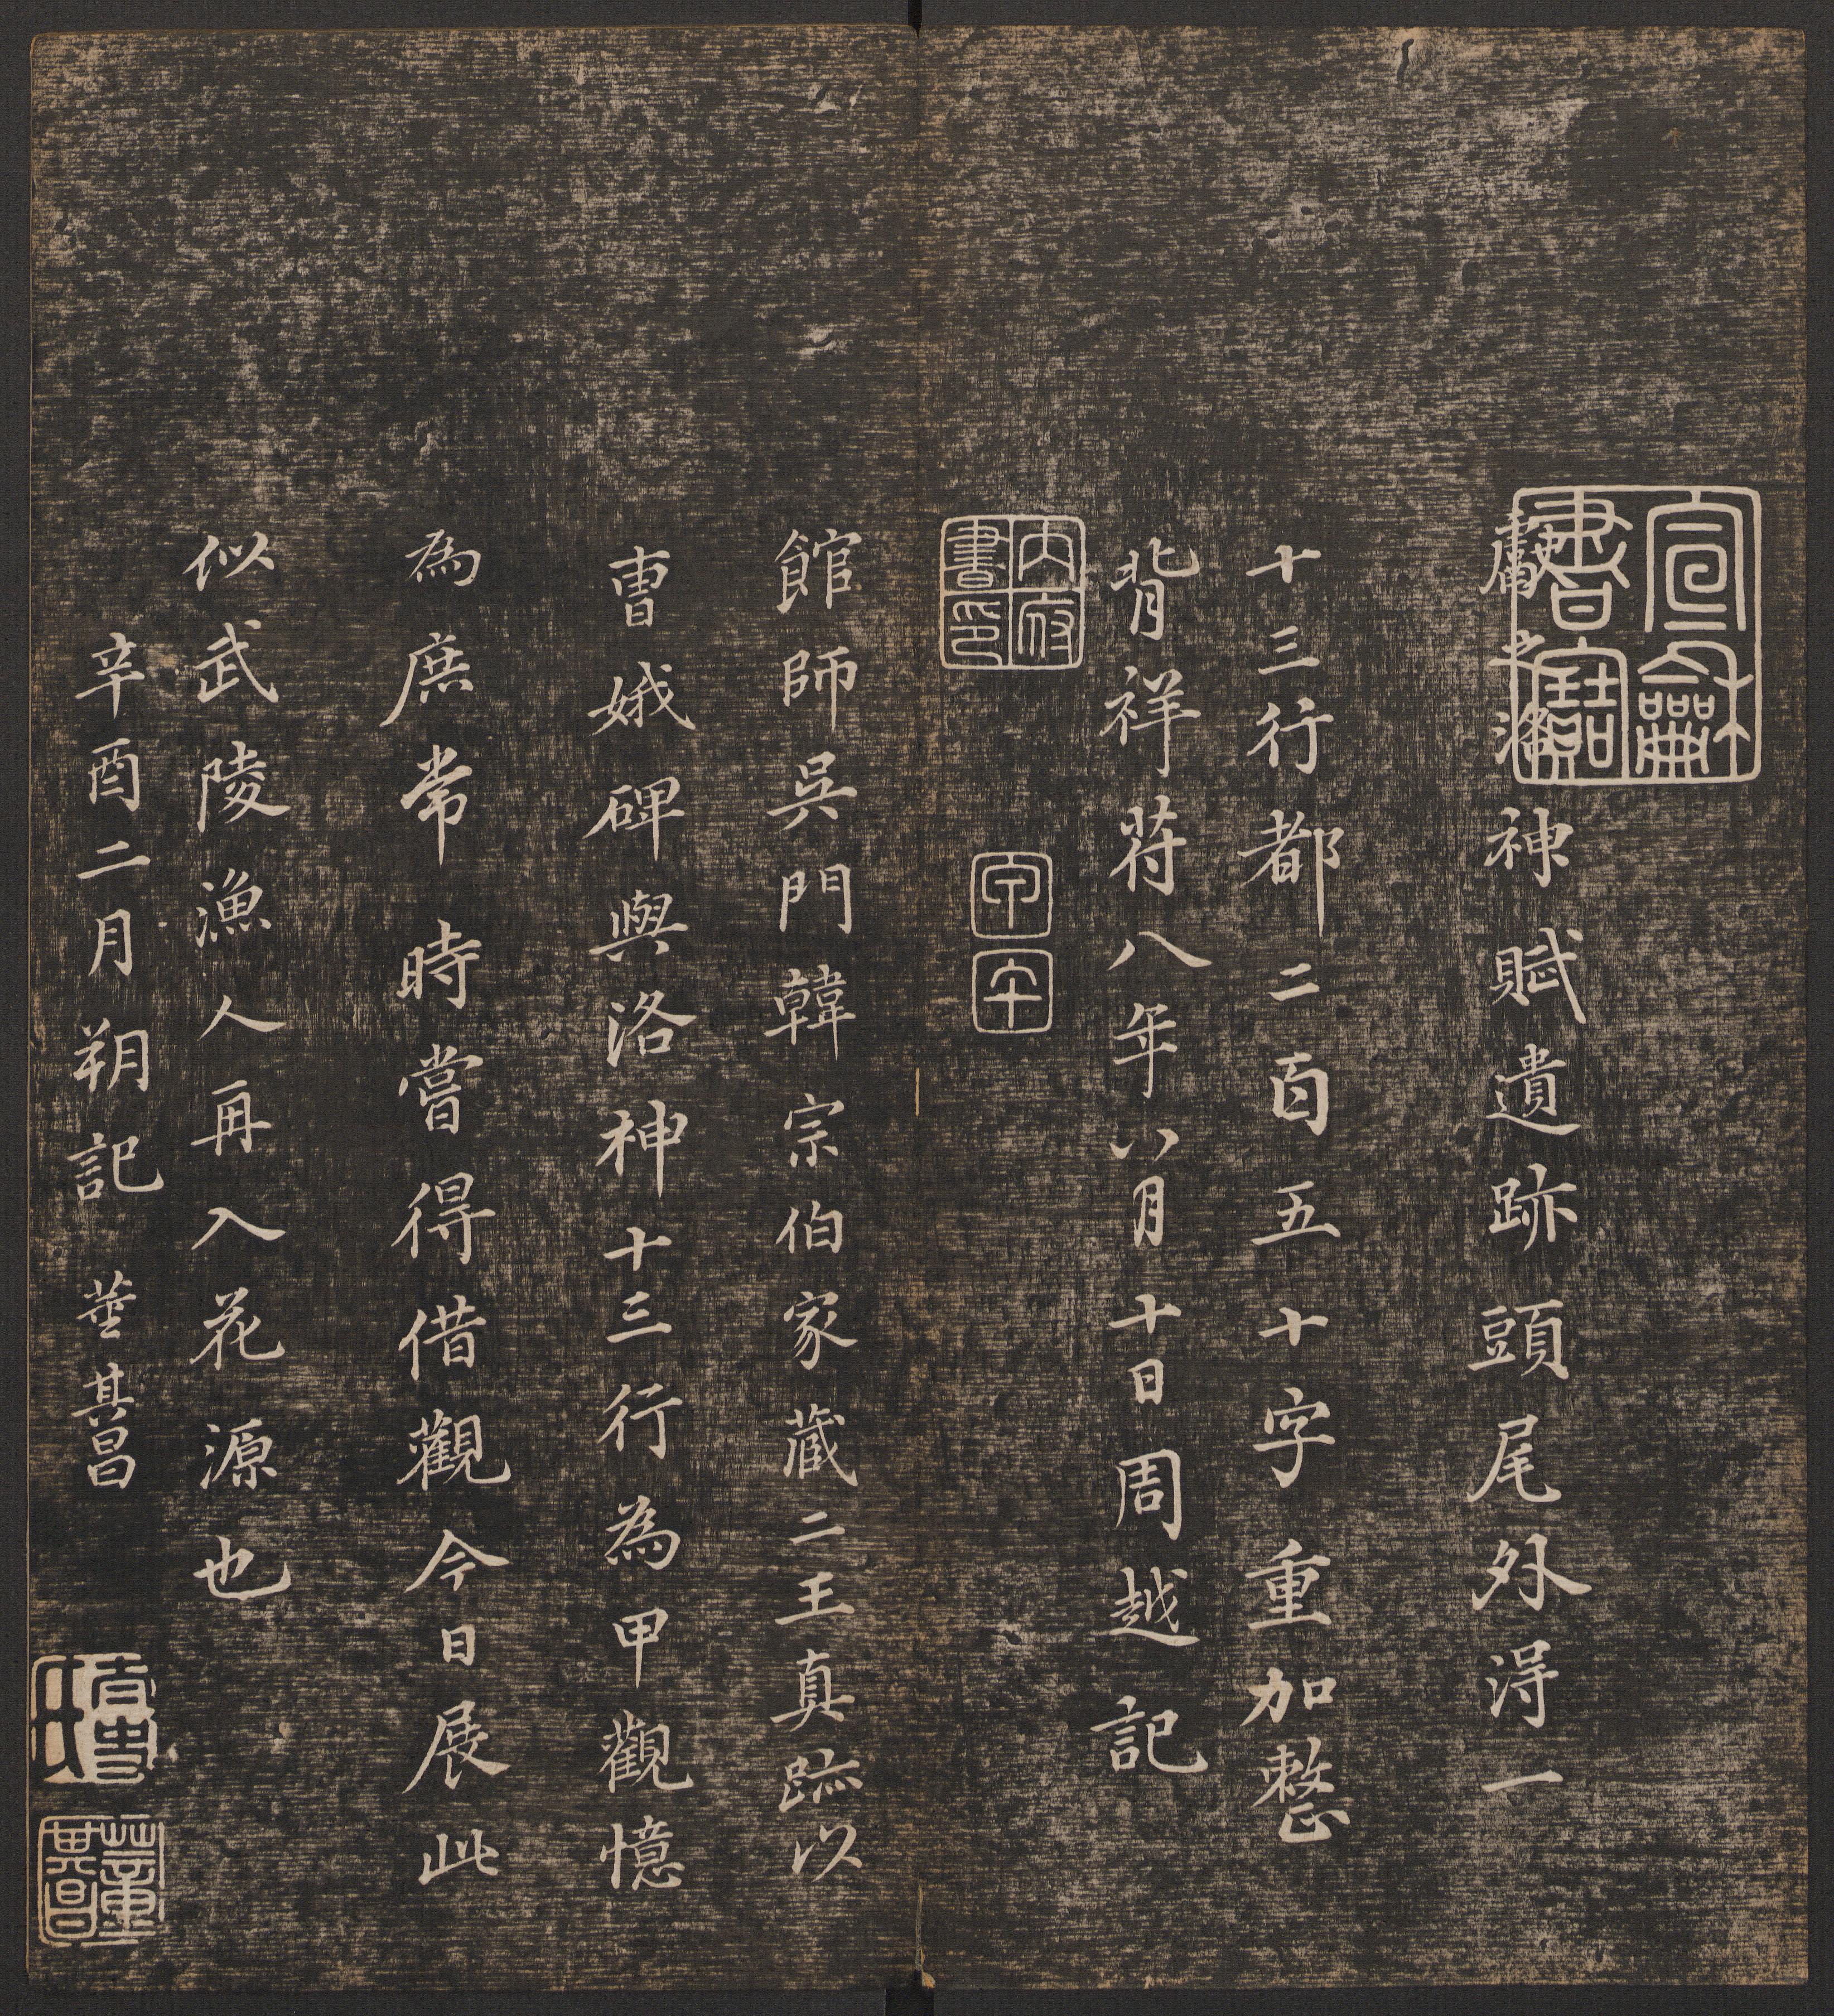 宣和書寶
獻之洛神賦遺跡頭尾外淂一
十三行都二百五十字重加整
背祥符八年八月十日周越記
內府書印
館師吳門韓宗伯家藏二王真跡以
曹娥碑與洛神十三行為甲觀憶
為庶常時嘗得借觀今日展此
似武陵漁人再入花源也
辛酉二月朔記 董其昌
董其昌